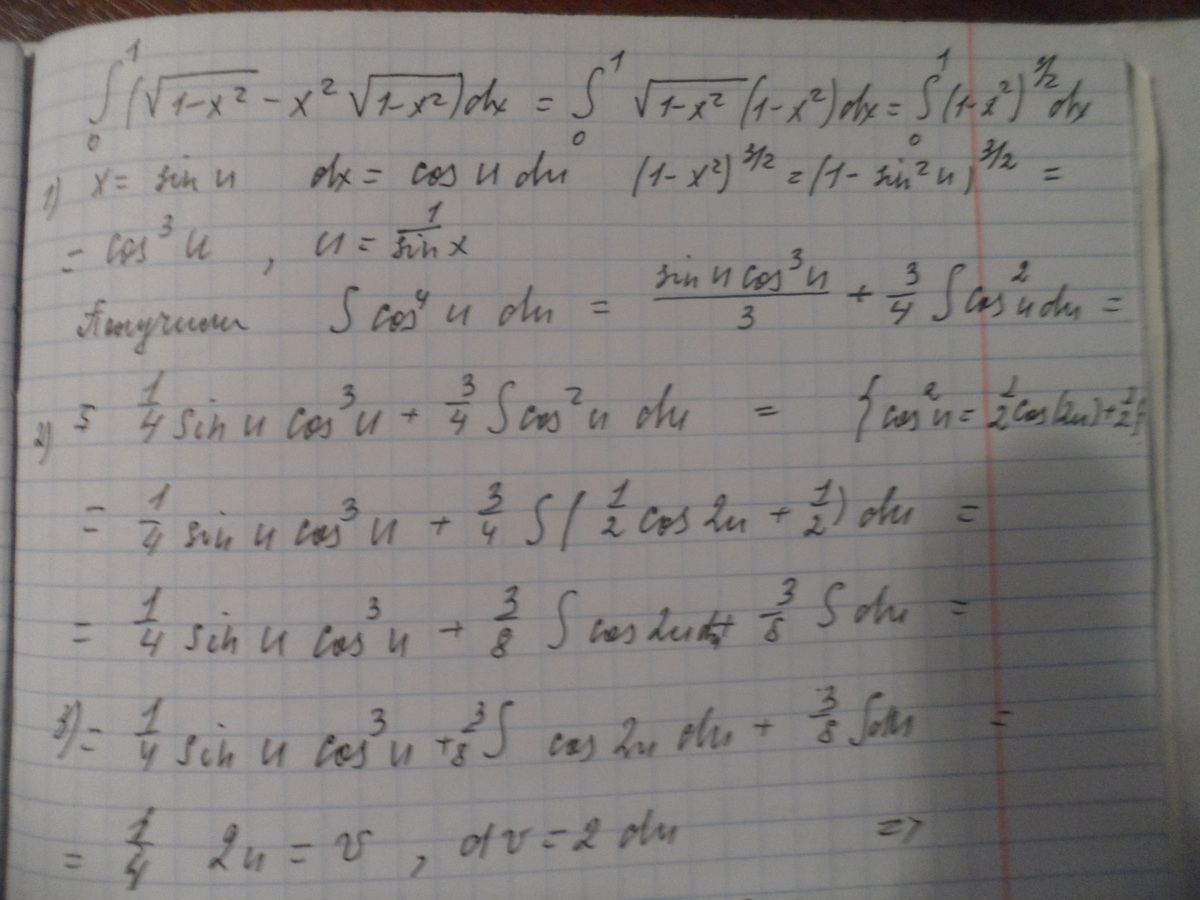 ∫₀¹ (√(1-x²) - x² √(1-x²)) dx = ∫₀¹ √(1-x²) (1-x²) dx = ∫₀¹ (1-x²)^(3/2) dx
1) x = sin u dx = cos u du (1-x²)^(3/2) = (1 - sin² u)^(3/2) =
= cos³ u , u = 1/(sin x)
Получим ∫ cos⁴ u du = (sin u cos³ u)/3 + 3/4 ∫ cos² u du =
2) = 1/4 sin u cos³ u + 3/4 ∫ cos² u du = {cos² u = 1/2 cos(2u) + 1/2}
= 1/4 sin u cos³ u + 3/4 ∫ (1/2 cos 2u + 1/2) du =
= 1/4 sin u cos³ u + 3/8 ∫ cos 2u du + 3/8 ∫ du =
3) = 1/4 sin u cos³ u + 3/8 ∫ cos 2u du + 3/8 ∫ du =
= 1/4 2u = v , dv = 2 du =>